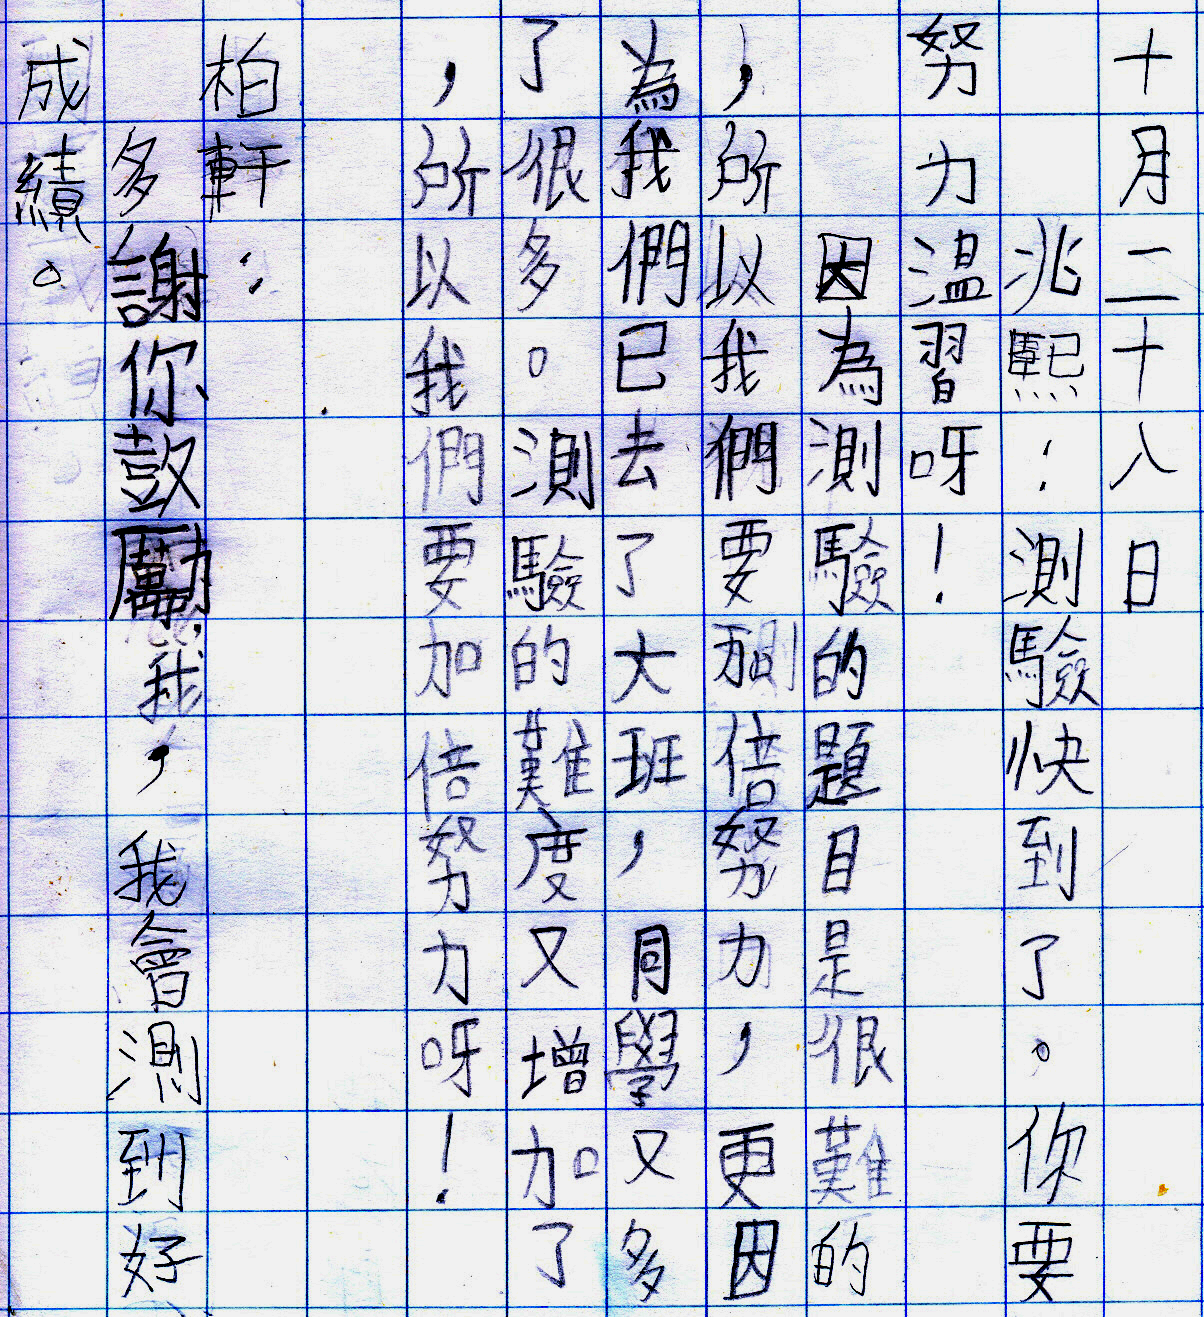 十月二十八日
兆熙：測驗快到了。你要
努力温習呀！
因為測驗的題目是很難的
，所以我們要加倍努力，更因
為我們已去了大班，同學又多
了很多。測驗的難度又增加了
，所以我們要加倍努力呀！
柏軒：
多謝你鼓勵我，我會測到好
成績。